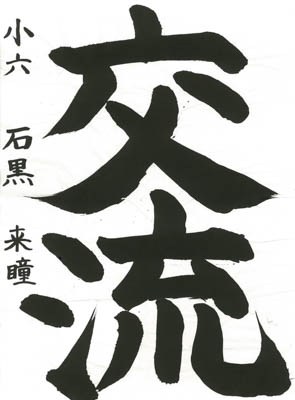 交流
小六 石黒 来瞳